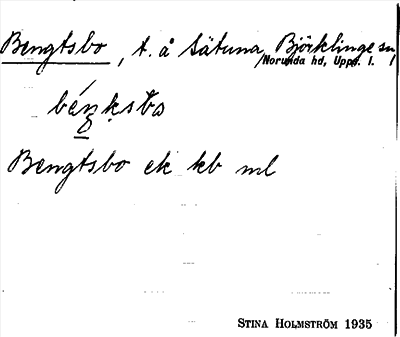 Bengtsbo, t. å Sätuna, Björklinge sn
Norunda hd, Upps. l.
Bengtsbo ek kb ml
STINA HOLMSTRÖM 1935